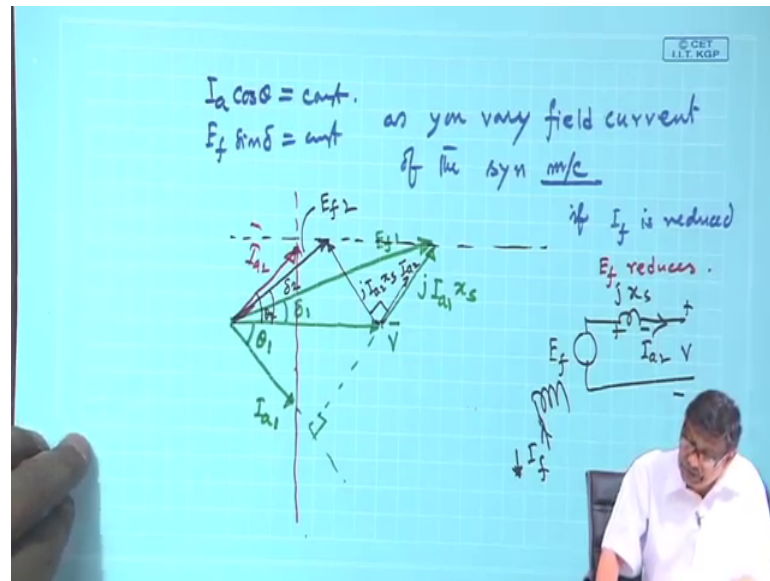 © CET
I.I.T. KGP
Ia cosθ = const.
Ef sinδ = const
as you vary field current
of the syn m/c
if If is reduced
Ef reduces.
Ef2
Ia2
Ef1
δ2
θ2
δ1
jIa2 xs
Ia2
jIa1 xs
θ1
V
Ia1
j xs
+
+ -
Ef
Ia2
V
-
↓ If